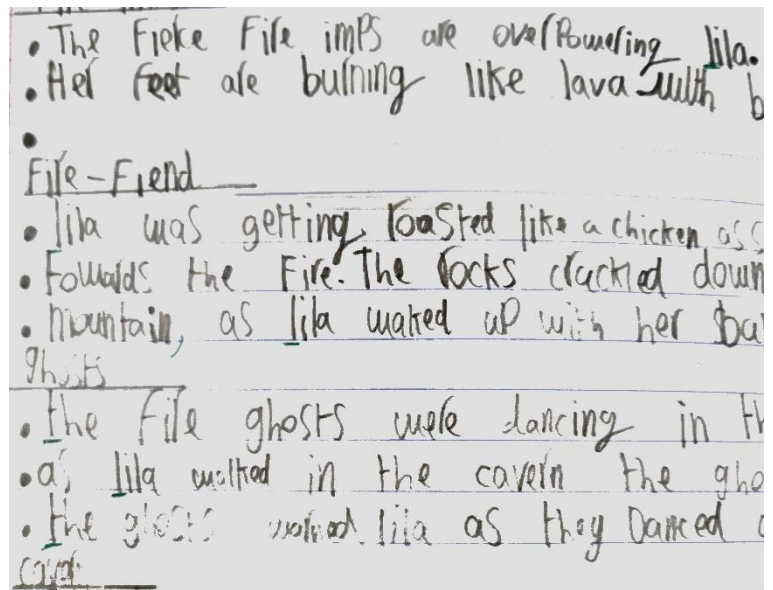 • The Fieke Fire imps are overpowering lila.
• Her feet are burning like lava with b
•
Fire-Fiend
• lila was getting roasted like a chicken as s
• Fowards the Fire. The rocks crackled down
• mountain, as lila walked up with her ba
ghosts
• the fire ghosts were dancing in th
• as lila walked in the cavern the gho
• the ghosts lila as they Danced